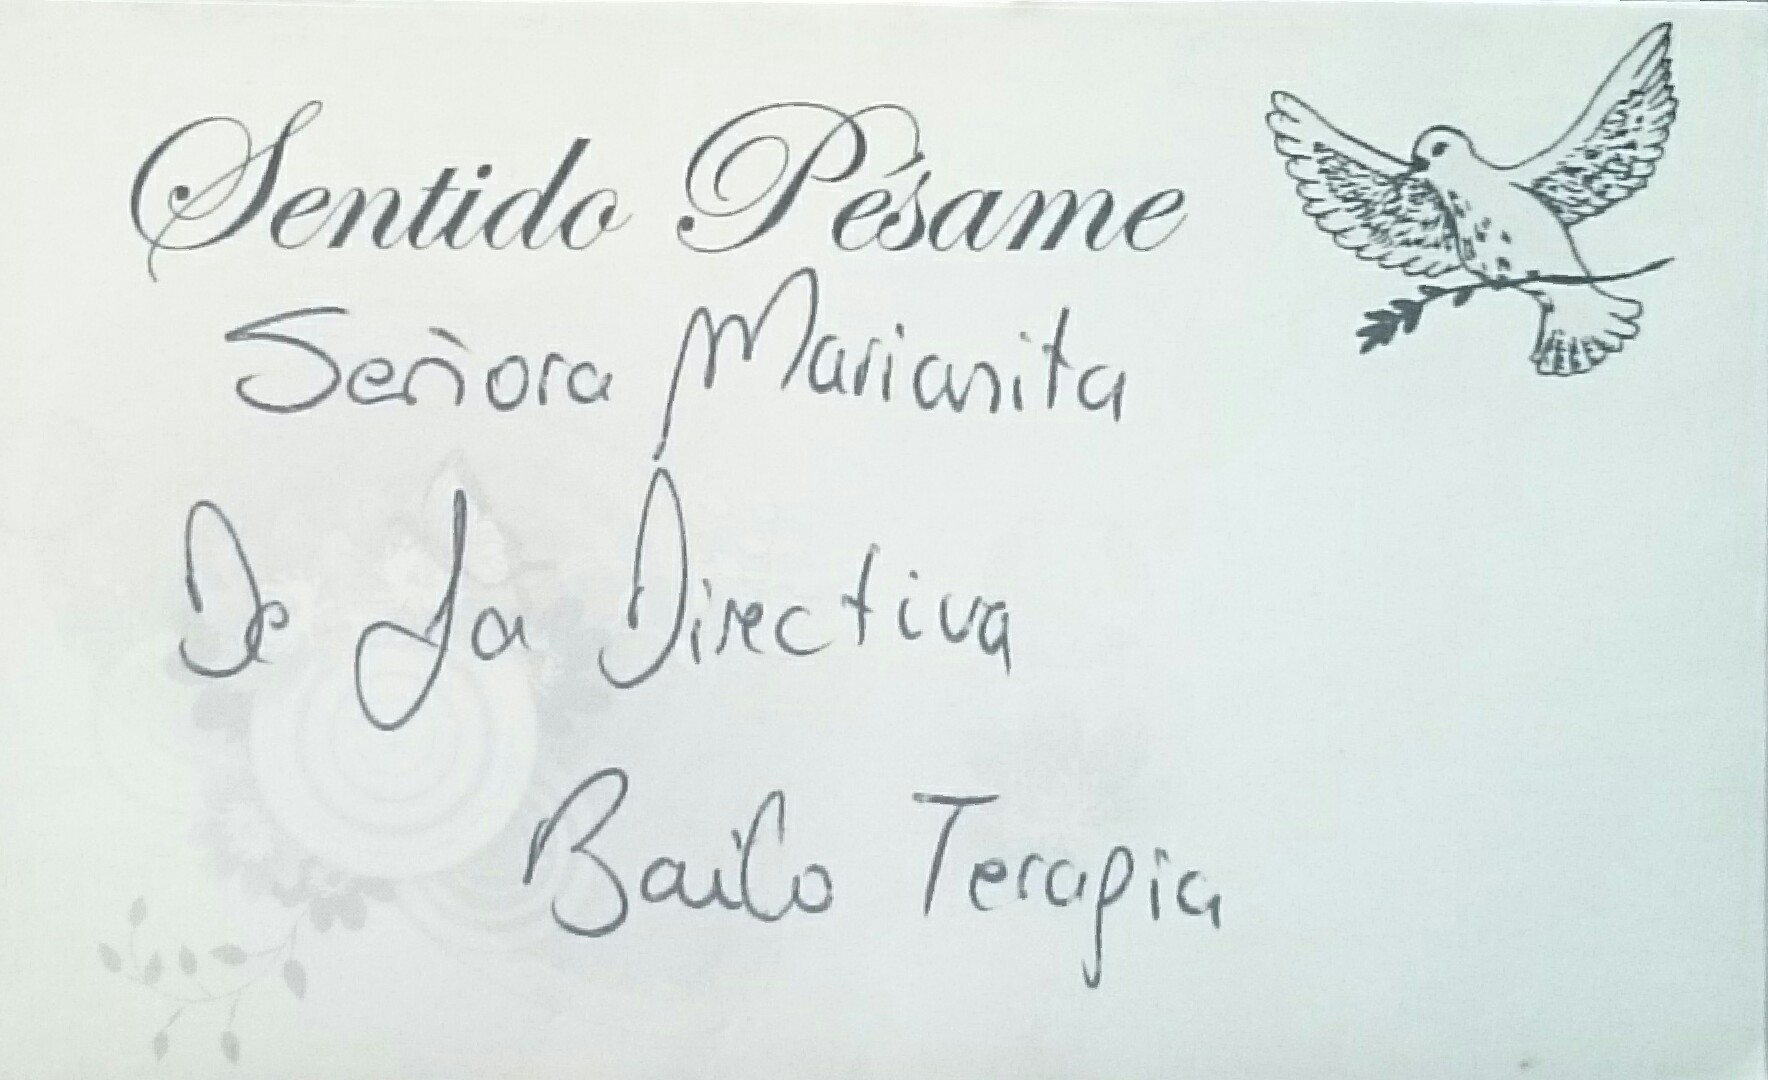 Sentido Pésame
Señora Marianita
De La Directiva
Bailo Terapia